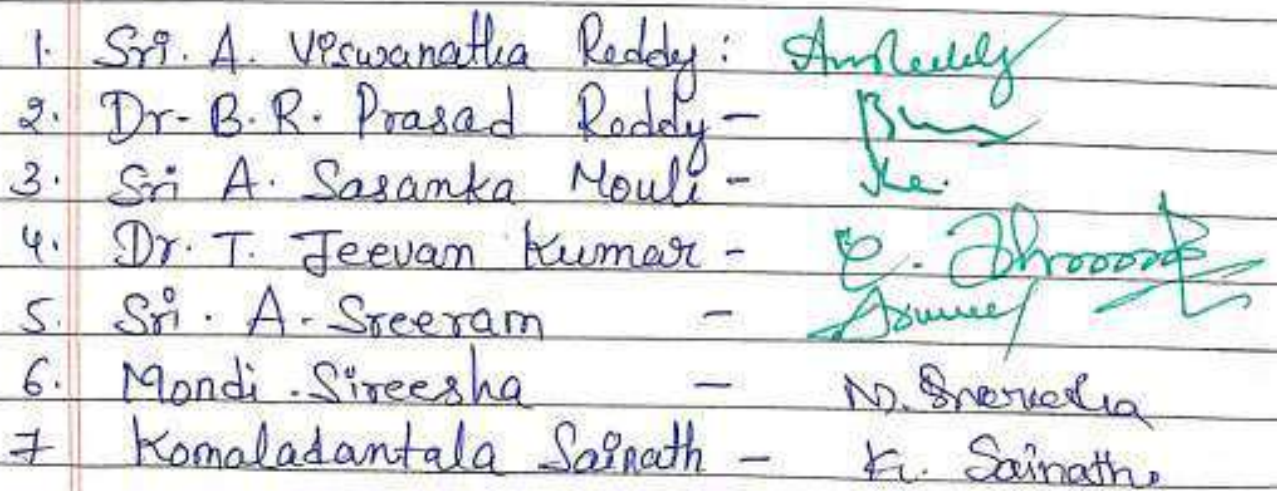 1. Sri. A. Viswanatha Reddy:
2. Dr. B.R. Prasad Reddy -
3. Sri A. Sasanka Mouli -
4. Dr. T. Jeevan Kumar -
5. Sri. A. Sreeram -
6. Mondi. Sireesha -
7 Komaladantala Sainath - K. Sainath.